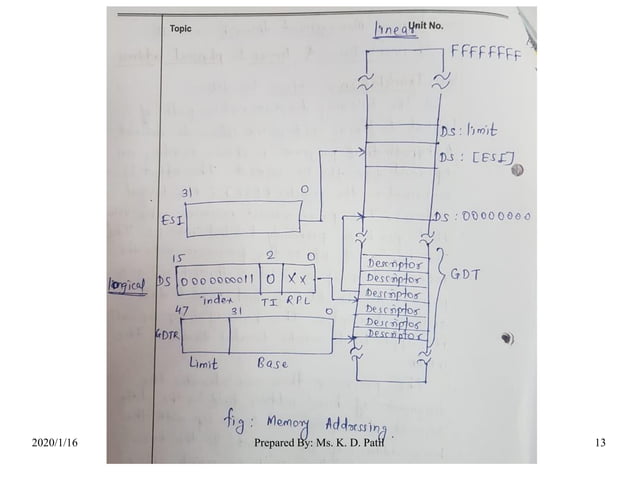 Topic
Unit No.
linear
FFFFFFFF
DS : limit
DS : [ESI]
31 0
ESI
DS : 00000000
15 2 0
Logical DS 0000000011 0 XX
index TI RPL
Descriptor
Descriptor
Descriptor
Descriptor
Descriptor
Descriptor
GDT
47 31 0
GDTR
Limit Base
fig : Memory Addressing.
2020/1/16
Prepared By: Ms. K. D. Patil
13